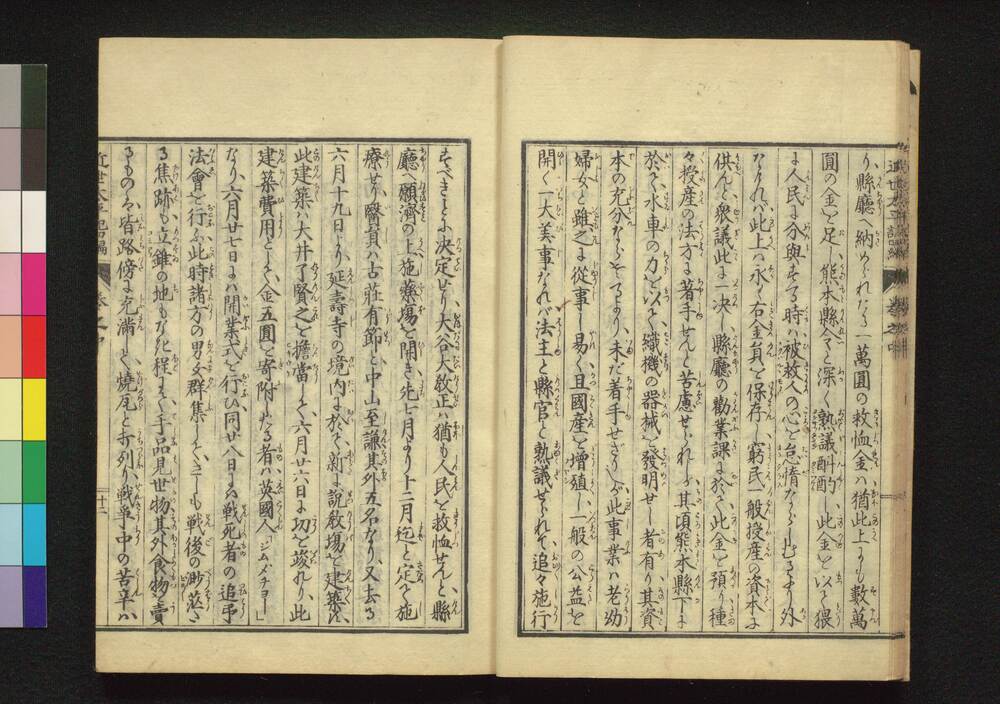 り、縣廳へ納められたる一萬圓の救恤金ハ猶此上にも數萬
圓の金を足し、熊本縣令と深く熟議酙酌し、此金を以て猥
に人民に分與する時ハ被救人の心を怠惰ならしむるより外
なけれバ、此上ハ永く右金員を保存し、窮民一般授産の資本に
供んと衆議此に一決し、縣廳の勸業課に於て此金を預り、種
々授産の法方に著手せんと苦慮せられしが、其頃熊本縣下に
於て、水車の力を以て織機の器械を發明せし者有り、其資
本の充分ならざるより、未だ着手せざりしが、此事業ハ老幼
婦女と雖之に從事し易く、且國産を增殖し、一般の公益を
開く一大美事なれバ、法主と縣官と熟議せられて、追々施行
すべきことに決定せり、大谷大敎正ハ猶も人民を救恤せんと縣
廳へ願濟の上、施藥場を開き、先七月より十二月迄と定て施
療せり、醫員ハ古莊有節と中山至謙其外五名なり、又去る
六月十九日より、延壽寺の境内に於て新に説敎場を建築す、
此建築ハ大井了賢之を擔當して、六月廿六日に功を竣れり、此
建築費用として、金五圓を寄附したる者ハ英國人「ジムバチヨー」
なり、六月廿七日にハ開業式を行ひ、同廿八日にハ戰死者の追弔
法會を行ふ、此時諸方の男女群集して、さしも戰後の
る焦跡も、立錐の地もなき程にて、手品見世物其外食物賣
るものら皆路傍に充滿して、燒瓦を打列り、戰爭中の苦辛ハ
近世太平記
十二